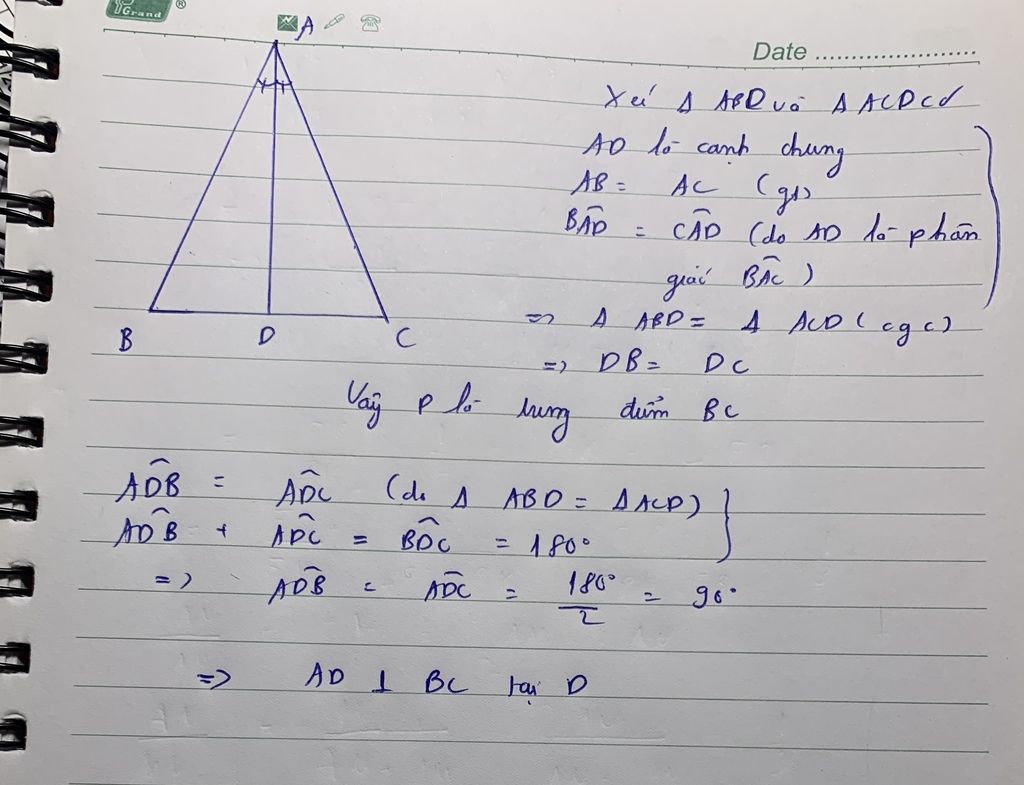 Grand ®
Date
A
B D C
Xét Δ ABD và Δ ACD có
AD là cạnh chung
AB = AC (gt)
BAD̂ = CAD̂ (do AD là phân
giác BAĈ)
=> Δ ABD = Δ ACD (cgc)
=> DB = DC
Vậy D là trung điểm BC
ADB̂ = ADĈ (do Δ ABD = Δ ACD)
ADB̂ + ADĈ = BDĈ = 180°
=> ADB̂ = ADĈ = 180°/2 = 90°
=> AD ⊥ BC tại D